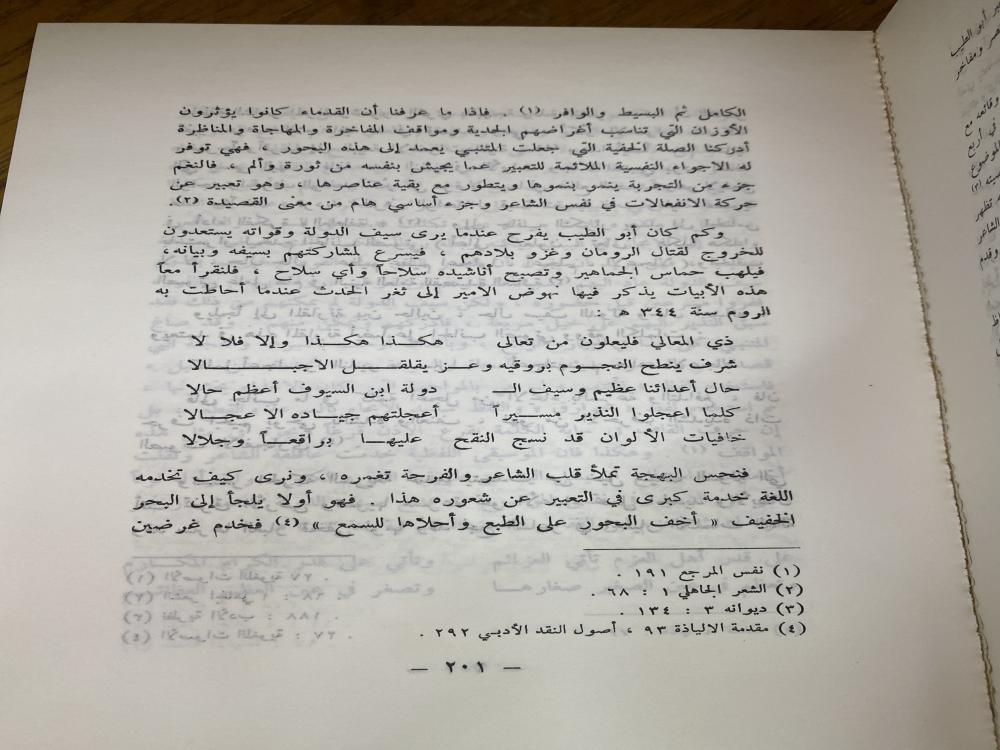 الكامل ثم البسيط والوافر (١) . فاذا ما عرفنا أن القدماء كانوا يؤثرون
الأوزان التي تناسب أغراضهم الجدية ومواقف المفاخرة والمهاجاة والمناظرة
أدركنا الصلة الخفية التي جعلت المتنبي يعمد إلى هذه البحور ، فهي توفر
له الاجواء النفسية الملائمة للتعبير عما يجيش بنفسه من ثورة وألم ، فالنغم
جزء من التجربة ينمو بنموها ويتطور مع بقية عناصرها ، وهو تعبير عن
حركة الانفعالات في نفس الشاعر وجزء أساسي هام من معنى القصيدة (٢).
وكم كان أبو الطيب يفرح عندما يرى سيف الدولة وقواته يستعدون
للخروج لقتال الرومان وغزو بلادهم ، فيسرع لمشاركتهم بسيفه وبيانه،
فيلهب حماس الجماهير وتصبح أناشيده سلاحاً وأي سلاح ، فلنقرأ معاً
هذه الأبيات يذكر فيها نهوض الامير إلى ثغر الحدث عندما أحاطت به
الروم سنة ٣٤٤ هـ :
ذي المعالي فليعلون من تعالى هكـذا هكـذا وإلا فلا لا
شرف ينطح النجـوم بروقيه وعـز يقلقـل الاجبـالا
حال أعدائنا عظيم وسيف الـ دولة ابن السيوف أعظم حالا
كلما اعجلوا النذير مسـيراً أعجلتهم جيـاده الا عجـالا
خافيات الألوان قد نسج النقح عليهـا براقعـاً وجلالا
فنحس البهجة تملأ قلب الشاعر والفرحة تغمره ونرى كيف تخدمه
اللغة خدمة كبرى في التعبير عن شعوره هذا . فهو أولا يلجأ إلى البحر
الخفيف « أخف البحور على الطبع وأحلاها للسمع » (٤) فخدم غرضين
(١) نفس المرجع ١٩١ .
(٢) الشعر الجاهلي ١ : ٦٨ .
(٣) ديوانه ٣ : ١٣٤ .
(٤) مقدمة الالياذة ٩٣ ، أصول النقد الأدبي ٢٩٢ .
— ٢٠١ —